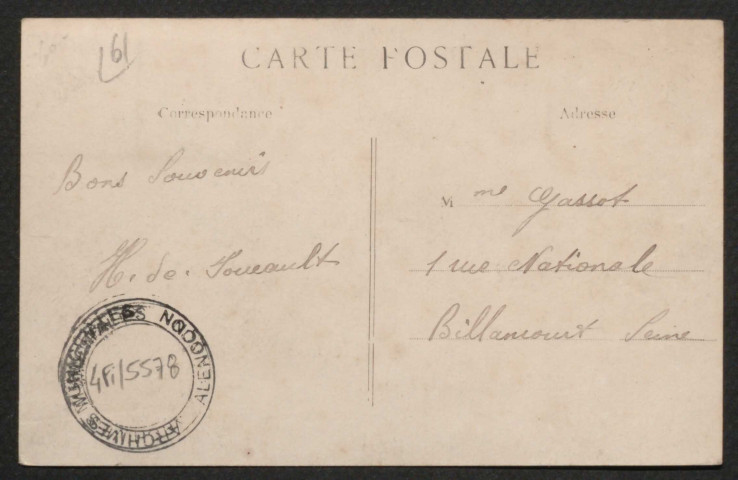 61
CARTE POSTALE
Correspondance
Adresse
Bons Souvenirs
H. de. Foucault
Mme Gassot
1 rue Nationale
Billancourt Seine
ARCHIVES MUNICIPALES ALENÇON
4Fi/5578